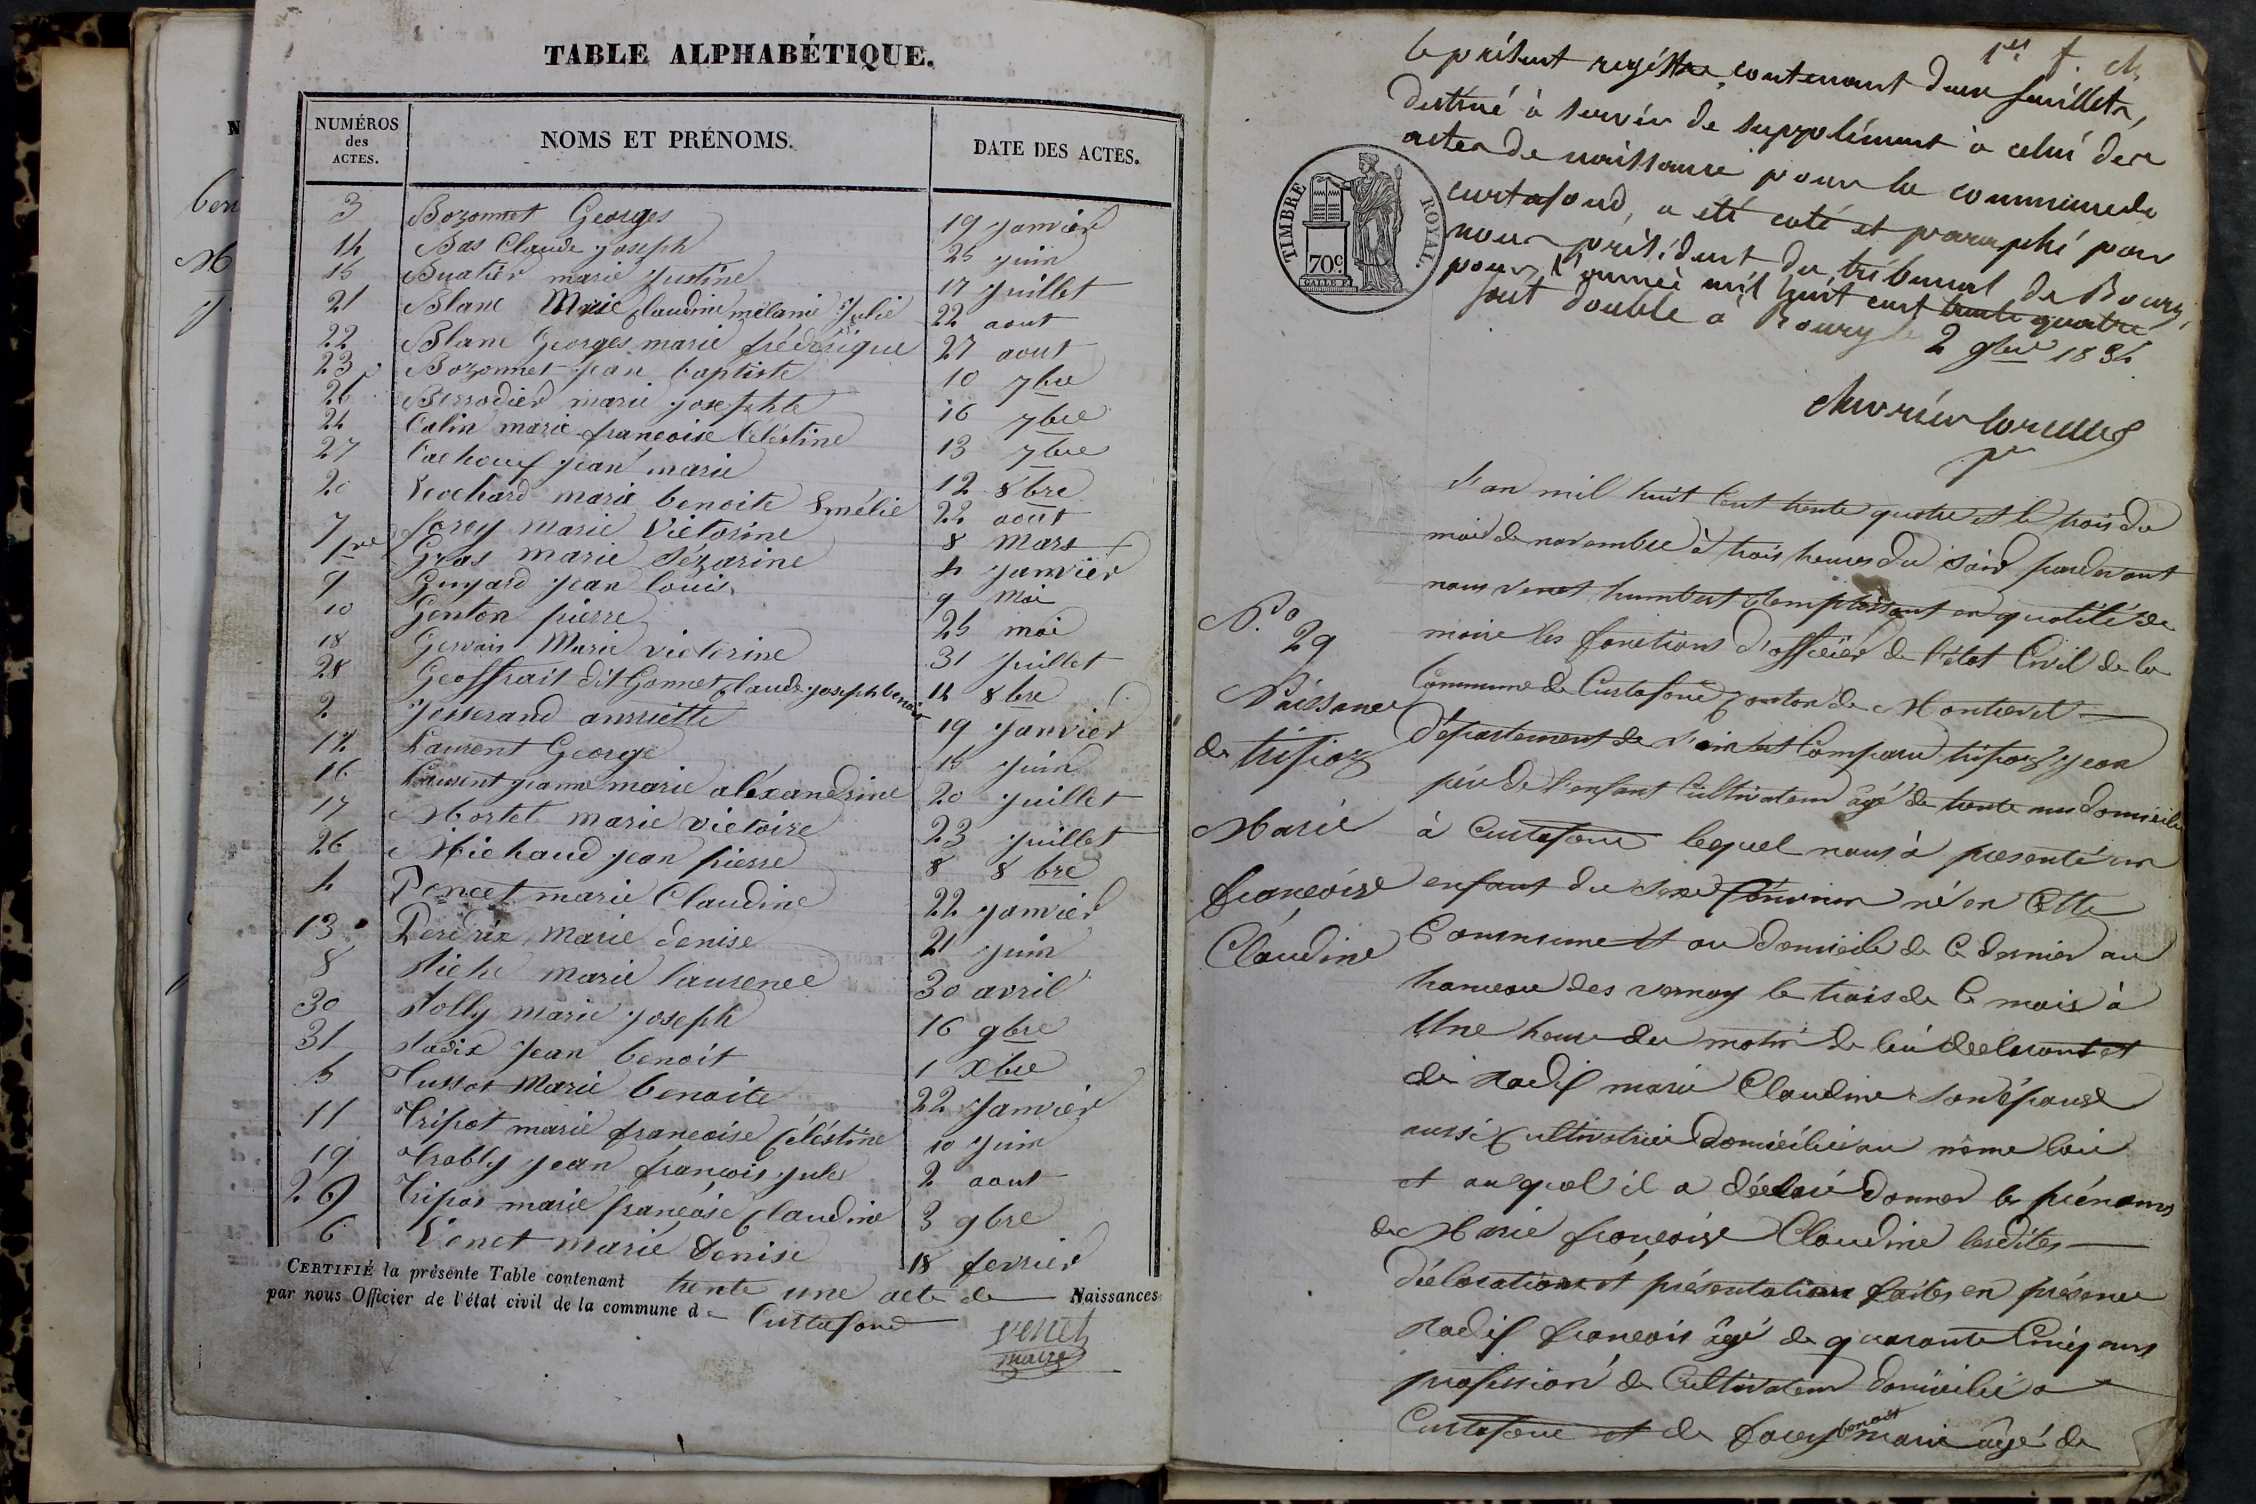 TABLE ALPHABÉTIQUE.
NUMÉROS des ACTES. NOMS ET PRÉNOMS. DATE DES ACTES.
3 Bozonnet Georges 19 janvier
14 Bas Claude joseph 25 juin
15 Buatier marie justine 17 juillet
21 Blanc Marie Claudine mélanie Julie 22 aout
22 Blanc Georges marie frédérique 27 aout
23 Bozonnet jean baptiste 10 7bre
25 marie josephte 16 7bre
24 Calin marie françoise Céléstine 13 7bre
27 jean marie 12 8bre
20 marie benoite Emélie 22 août
7 foray marie Victorine 8 Mars
1re Gras marie Sézarine 4 janvier
9 Guyard jean louis. 9 Mai
10 Genton pierre 25 mai
18 Gervais Marie victorine 31 juillet
28 Geoffrait dit Gonnet Claude joseph benoit 14 8bre
2 Josserand anrriette 19 janvier
12 Laurent George 15 juin
16 Laurent jeanne marie aléxandrine 20 juillet
17 Mortel marie victoire 23 juillet
26 Michaud jean pierre 8 8bre
4 Poncet marie Claudine 22 janvier
13 Perdrix Marie denise 21 juin
8 marie laurence 30 avril
30 marie joseph 16 9bre
31 jean benoit 1 Xbre
5 Tussot Marie benoite 22 janvier
11 Tripot marie françoise Céléstine 10 juin
19 Trably jean françois jules 2 aout
29 Tripoz marie françoise Claudine 3 9bre
6 Venet marie Denise 18 fevrier
CERTIFIÉ la présente Table contenant trente une acte de Naissances
par nous Officier de l'état civil de la commune de Curtafond
Venet
maire
1er f.
le présent registre, contenant deux feuillets,
destiné à servir de supplément à celui des
actes de naissance pour la commune de
curtafond, a été coté et paraphé par
nous président du tribunal de Bourg,
pour l'année mil huit cent trente quatre
fait double à Bourg le 2 9bre 1834
TIMBRE ROYAL.
70c.
L'an mil huit Cent trente quatre et le trois du
mois de novembre à trois heures du soir pardevant
nous Venet humbert Remplissant en qualité de
maire les fonctions d'officier de l'état Civil de la
Commune de Curtafond Canton de Montrevel
département de l'ain est Comparu tripoz jean
père de l'enfant Cultivateur âgé de trente ans domicilié
à Curtafond lequel nous à presenté un
enfant du sexe féminin né en Cette
Commune et au domicile de Ce dernier au
hameau des vernay le trois de Ce mois à
Une heure du matin de lui déclarant et
de marie Claudine son épouse
aussi Cultivatrice domiciliée au même lieu
et auquel il a déclaré donner le prénoms
de Marie françoise Claudine lesdites
déclaration et présentation faites en présence
françois âgé de quarante Cinq ans
profession de Cultivateur domicilié a
Curtafond et de foray benoit marie âgé de
N.o
29
Naissance
de tripoz
Marie
françoise
Claudine